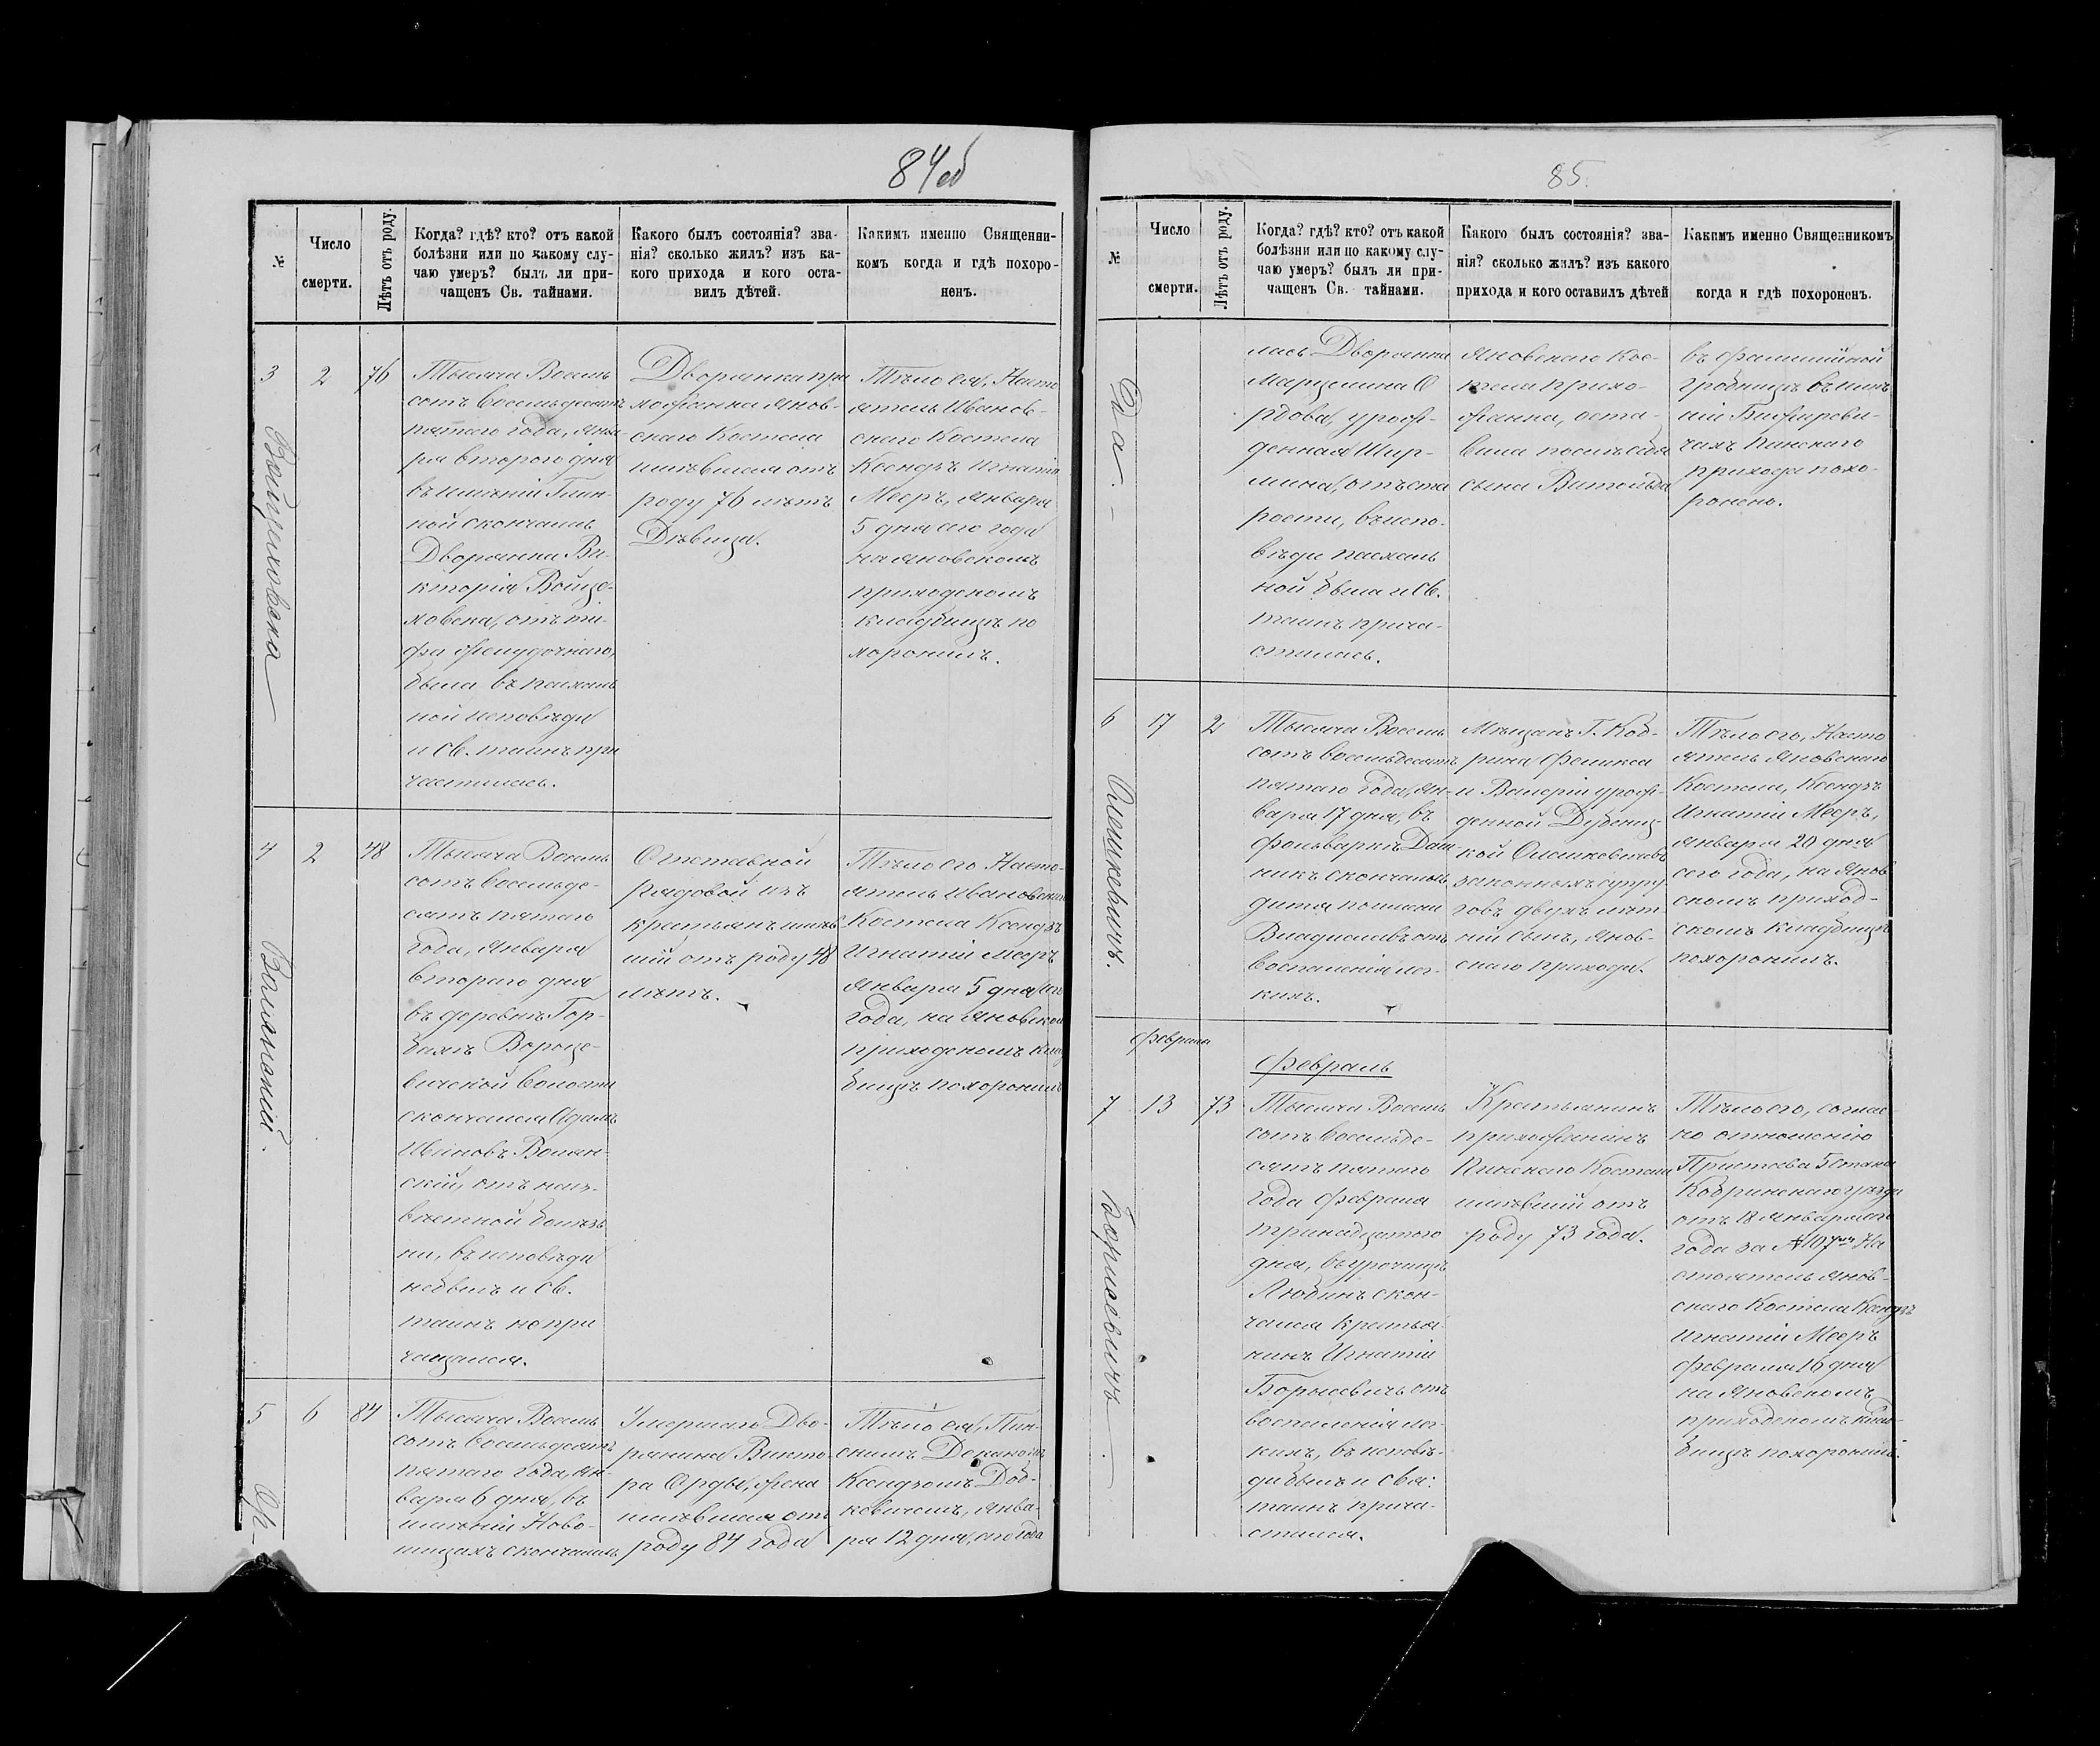 84об
№
Число
смерти.
Лѣтъ отъ роду.
Когда? гдѣ? кто? отъ какой
болѣзни или по какому слу-
чаю умеръ? былъ ли при-
чащенъ Св. тайнами.
Какого былъ состоянія? зва-
нія? сколько жилъ? изъ ка-
кого прихода и кого оста-
вилъ дѣтей.
Какимъ именно Священни-
комъ когда и гдѣ похоро-
ненъ.
3
Войцеховска
2
76
Тысяча Восемь
сотъ восемьдесятъ
пятаго года, Янва
ря второго дня
въ имѣніи Глин-
ной скончалась
Дворянка Ви-
кторія Войце-
ховска, отъ ти-
фа желудочнаго,
была въ пасхаль
ной исповѣди
и Св. таинъ при
частилась.
Дворянка при
хожанка Янов-
скаго Костела
имѣвшая отъ
роду 76 лѣтъ
Дѣвица.
Тѣло ея, Насто
ятель Иванов-
скаго Костела
Ксендзъ Игнатій
Мееръ, Января
5 дня сего года
на Яновскомъ
приходскомъ
кладбищѣ по
хоронилъ.
4
Волянскій.
2
48
Тысяча Восемь
сотъ восемьде-
сятъ пятаго
года, Января
втораго дня
въ деревнѣ Гор-
бахъ Вороце-
вичской волости
скончался Адамъ
Ивановъ Волян-
скій, отъ неиз-
вѣстной болѣз
ни, въ исповѣди
небылъ и Св.
таинъ не при
чащался.
Отставной
рядовой изъ
крестьянъ имѣв
шій отъ роду 48
лѣтъ.
Тѣло его Насто-
ятель Ивановскаго
Костела Ксендзъ
Игнатій Мееръ
Января 5 дня сего
года, на Яновском
приходскомъ клад
бищѣ похоронилъ
5
Ор-
6
84
Тысяча Восемь
сотъ восемьдесятъ
пятаго года, Ян-
варя 6 дня, въ
имѣніи Ново-
шицахъ скончалась
Умершаго Дво-
рянина Викто-
ра Орды, жена
имѣвшая отъ
роду 84 года
Тѣло ея, Пин-
скимъ Деканомъ
Ксендзомъ Доб-
кевичемъ, Янва-
ря 12 дня, сего года
85.
№
Число
смерти.
Лѣтъ отъ роду.
Когда? гдѣ? кто? отъ какой
болѣзни или по какому слу-
чаю умеръ? былъ ли при-
чащенъ Св. тайнами.
Какого былъ состоянія? зва-
нія? сколько жилъ? изъ какого
прихода и кого оставилъ дѣтей
Какимъ именно Священникомъ
когда и гдѣ похороненъ.
Да.
лась Дворянка
Марцелина О
рдова, урож-
денная Шир-
мина, отъ ста
рости, въ испо-
вѣди пасхаль
ной была и Св.
таинъ прича-
стилась.
Яновскаго Кос-
тела прихо-
жанка, оста-
вила послѣ себя
сына Витольда
въ фамилійной
гробницѣ въ имѣ
ніи
чахъ Пинскаго
прихода похо-
ронена.
6
Олешкевичъ.
17
2
Тысяча Восемь
сотъ восемьдесятъ
пятаго года, Ян-
варя 17 дня, въ
фольваркѣ
никъ скончалось
дитя по имени
Владиславъ отъ
воспаленія лег-
кихъ.
Мѣщанъ Г. Коб-
рина Феликса
и Валеріи урож-
денной
кой Олешкевичевъ
законныхъ супру-
говъ двухъ лѣт-
ній сынъ, Янов-
скаго прихода.
Тѣло его, Насто
ятель Яновскаго
Костела, Ксендзъ
Игнатій Мееръ,
Января 20 дня
сего года, на Янов
скомъ приход-
скомъ кладбищѣ
похоронилъ.
Февраля
Февраль
7
Борисевичъ.
13
73
Тысяча Восемь
сотъ восемьде-
сятъ пятаго
года Февраля
тринадцатого
дня, въ урочищѣ
Любинъ скон-
чался крестья-
нинъ Игнатій
Борисевичъ отъ
воспаленія лег-
кихъ, въ исповѣ-
ди былъ и Свя:
таинъ прича-
стился.
Крестьянинъ
прихожанинъ
Пинскаго Костела
имѣвшій отъ
роду 73 года.
Тѣло его, соглас
но отношенію
Пристава 5 стана
Кобринскаго уѣзда
отъ 18 Января сего
года за № 107мъ На
стоятель Янов-
скаго Костела Ксендзъ
Игнатій Мееръ
Февраля 16 дня
на Яновскомъ
приходскомъ клад-
бищѣ похоронилъ.